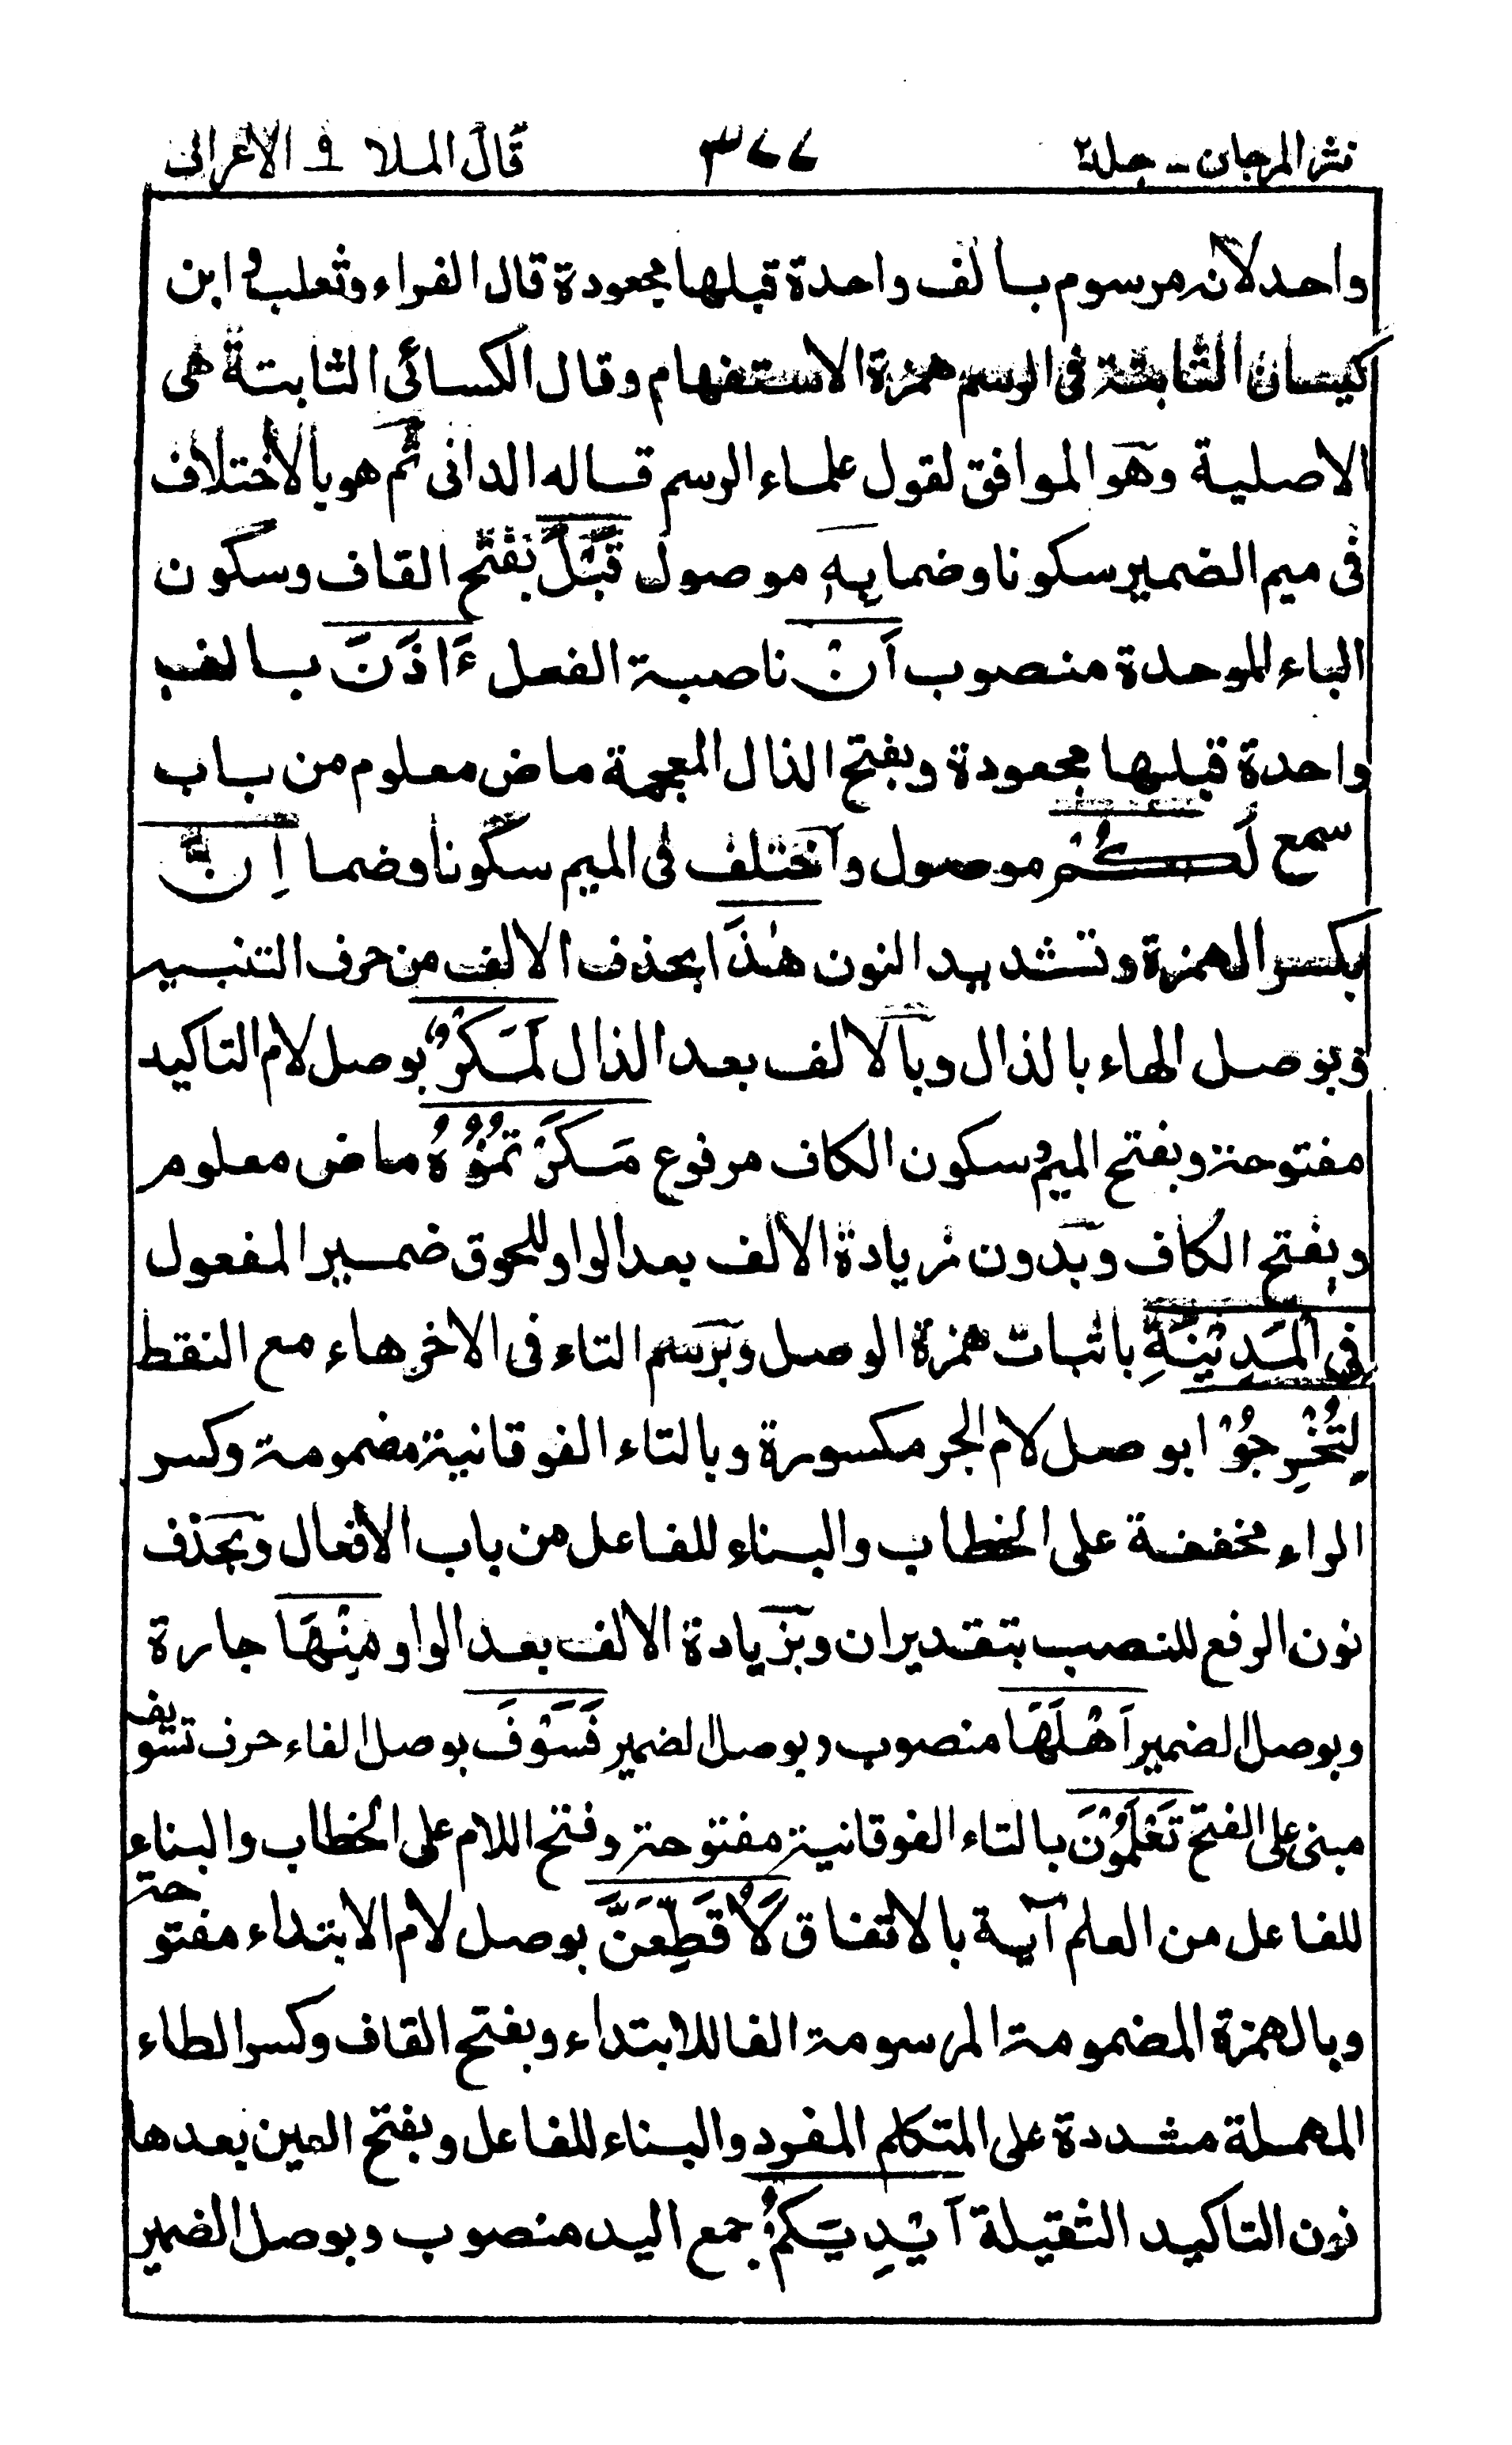 نثر المرجان - جلد٢ ٣٧٧ قال الملا ٩ الاعراف
واحد لانه مرسوم بالف واحدة قبلها مجعودة قال الفراء وثعلب و ابن
كيسان الثابتة فى الرسم همزة الاستفهام وقال الكسائى الثابتة هى
الاصلية وهو الموافق لقول علماء الرسم قاله الدانى ثم هو بالاختلاف
فى ميم الضمير سكونا وضما بِهٖ موصول قَبْلَ بفتح القاف وسكون
الباء الموحدة منصوب اَنْ ناصبة الفعل ءَاذَنَ بالف
واحدة قبلها مجعودة وبفتح الذال المعجمة ماض معلوم من باب
سمع لَكُمْ موصول واختلف فى الميم سكونا وضما اِنَّ
بكسر الهمزة وتشديد النون هٰذَا بحذف الالف من حرف التنبيه
وبوصل الهاء بالذال وبالالف بعد الذال لَمَكْرٌ بوصل لام التاكيد
مفتوحة وبفتح الميم وسكون الكاف مرفوع مَكَرْتُمُوْهُ ماض معلوم
وبفتح الكاف وبدون زيادة الالف بعد الواو للحوق ضمير المفعول
فِى الْمَدِيْنَةِ باثبات همزة الوصل وبرسم التاء فى الاخر هاء مع النقط
لِتُخْرِجُوْا بوصل لام الجر مكسورة وبالتاء الفوقانية مضمومة وكسر
الراء مخففة على الخطاب والبناء للفاعل من باب الافعال وبحذف
نون الرفع للنصب بتقدير ان وبزيادة الالف بعد الواو مِنْهَا جارة
وبوصل الضمير اَهْلَهَا منصوب وبوصل الضمير فَسَوْفَ بوصل الفاء حرف تسويف
مبنى على الفتح تَعْلَمُوْنَ بالتاء الفوقانية مفتوحة وفتح اللام على الخطاب والبناء
للفاعل من العلم آية بالاتفاق لَاُقَطِّعَنَّ بوصل لام الابتداء مفتوحة
وبالهمزة المضمومة المرسومة الفا للابتداء وبفتح القاف وكسر الطاء
المهملة مشددة على المتكلم المفرد والبناء للفاعل وبفتح العين بعدها
نون التاكيد الثقيلة اَيْدِيَكُمْ جمع اليد منصوب وبوصل الضمير